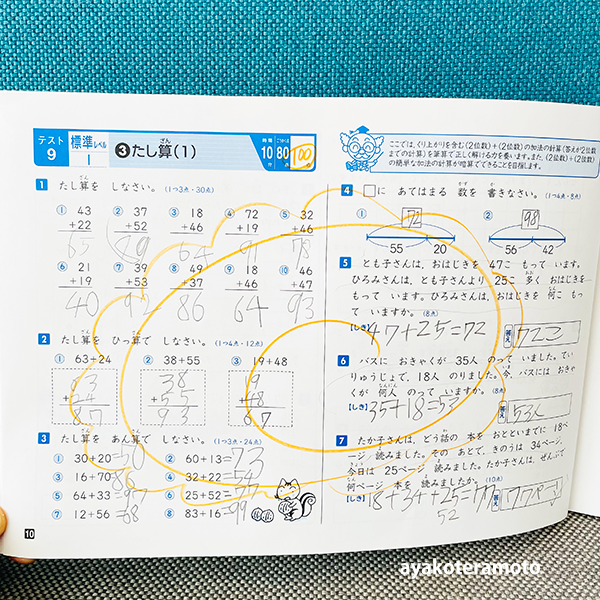 テスト 9 標準レベル 1 ③たし算(1) 時間 10分 ごうかく点 80点 100
1 たし算を しなさい。(1つ3点・30点)
① 43 ② 37 ③ 18 ④ 72 ⑤ 32
+22 +52 +46 +19 +46
65 89 64 91 78
⑥ 21 ⑦ 39 ⑧ 49 ⑨ 18 ⑩ 46
+19 +53 +37 +46 +47
40 92 86 64 93
2 たし算を ひっ算で しなさい。(1つ4点・12点)
① 63+24 ② 38+55 ③ 19+48
63 38 19
+24 +55 +48
87 93 67
3 たし算を あん算で しなさい。(1つ3点・24点)
① 30+20=50 ② 60+13=73
③ 16+70=86 ④ 32+22=54
⑤ 64+33=97 ⑥ 25+52=77
⑦ 12+56=68 ⑧ 83+16=99
10
ここでは、くり上がりを含む(2位数)+(2位数)の加法の計算(答えが2位数
までの計算)を筆算で正しく解ける力を養います。また、(2位数)+(2位数)
の簡単な加法の計算が暗算でできることを目指します。
4 □に あてはまる 数を 書きなさい。(1つ4点・8点)
① 72 ② 98
55 20 56 42
5 とも子さんは、おはじきを 47こ もって います。
ひろみさんは、とも子さんより 25こ 多く おはじきを
もって います。ひろみさんは、おはじきを 何こ もっ
て いますか。(8点)
【しき】47+25=72 答え 72こ
6 バスに おきゃくが 35人 のって いました。てい
りゅうじょで、18人 のりました。今、バスには おきゃ
くが 何人 のって いますか。(8点)
【しき】35+18=53 答え 53人
7 たか子さんは、どう話の 本を おとといまでに 18ペー
ジ 読みました。その あとで、きのうは 34ページ、
今日は 25ページ 読みました。たか子さんは、ぜんぶで
何ページ 本を 読みましたか。(10点)
【しき】18+34+25=77 答え 77ページ
52
ayakoteramoto